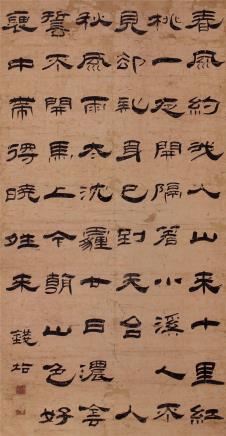 春風約我入山來十里紅
桃一夜開隔著小溪人不
見卻疑身已到天台入
秋風雨太沈霾廿日濃陰
誓不開馬上今朝山色好
中帶得來
錢坫